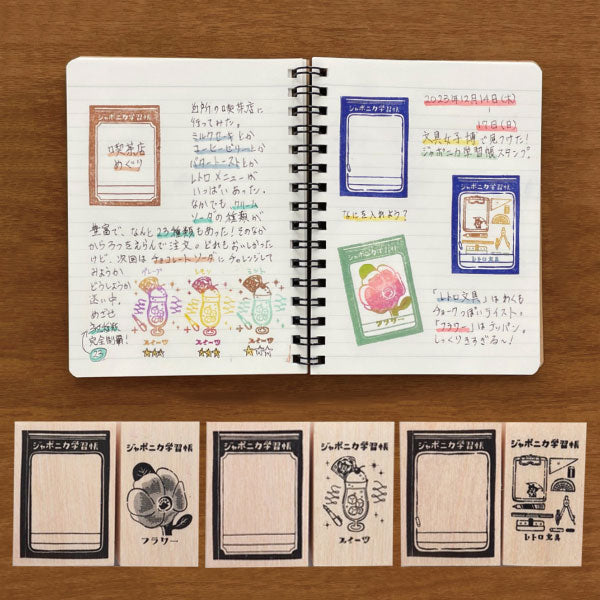 ジャポニカ学習帳
喫茶店
めぐり
近所の喫茶店に
行ってみた。
ミルクセーキとか
コーヒーゼリーとか
バタートーストとか
レトロメニューが
いっぱいあった。
なかでもクリーム
ソーダの種類が
豊富で、なんと23種類もあった！そのなか
から3つをえらんで注文。どれもおいしかった
けど、次回はチョコレートソーダにチャレンジして
みようか
どうしようか
迷い中。
めざせ
23種類
完全制覇！
23
グレープ
レモン
ミント
スイーツ
スイーツ
スイーツ
ジャポニカ学習帳
なにを入れよう？
ジャポニカ学習帳
フラワー
2023年12月14日(木)
17日(日)
文具女子博で見つけた！
ジャポニカ学習帳スタンプ。
ジャポニカ学習帳
レトロ文具
「レトロ文具」はあくも
チョークっぽいテイスト。
「フラワー」はクッパン。
しっくりきすぎる〜！
ジャポニカ学習帳
ジャポニカ学習帳
フラワー
ジャポニカ学習帳
ジャポニカ学習帳
スイーツ
ジャポニカ学習帳
ジャポニカ学習帳
レトロ文具